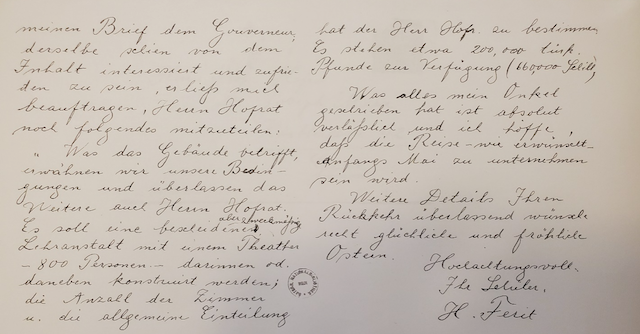 meinen Brief dem Gouverneur,
derselbe schien von dem
Inhalt interessiert und zufrie-
den zu sein, er ließ mich
beauftragen, Herrn Hofrat
noch folgendes mitzuteilen:
„Was das Gebäude betrifft,
erwähnen wir unsere Bedin-
gungen und überlassen das
Weitere auch Herrn Hofrat.
Es soll eine bescheidene aber zweckmäßig
Lehranstalt mit einem Theather
- 800 Personen - darinnen od.
daneben konstruirt werden;
die Anzall der Zimmer
u. die allgemeine Einteilung
hat der Herr Hofr. zu bestimmen
Es stehen etwa 200,000 türk.
Pfunde zur Verfügung (660,000
Was alles mein Onkel
geschrieben hat ist absolut
verläßlich und ich hoffe,
daß die Reise - wie erwünscht -
anfangs Mai zu unternehmen
sein wird.
Weitere Details Ihren
Rückkehr überlassend wünsche
recht glückliche und fröhliche
Ostern.
Hochachtungsvoll.
Ihr Schüler,
H. Ferit